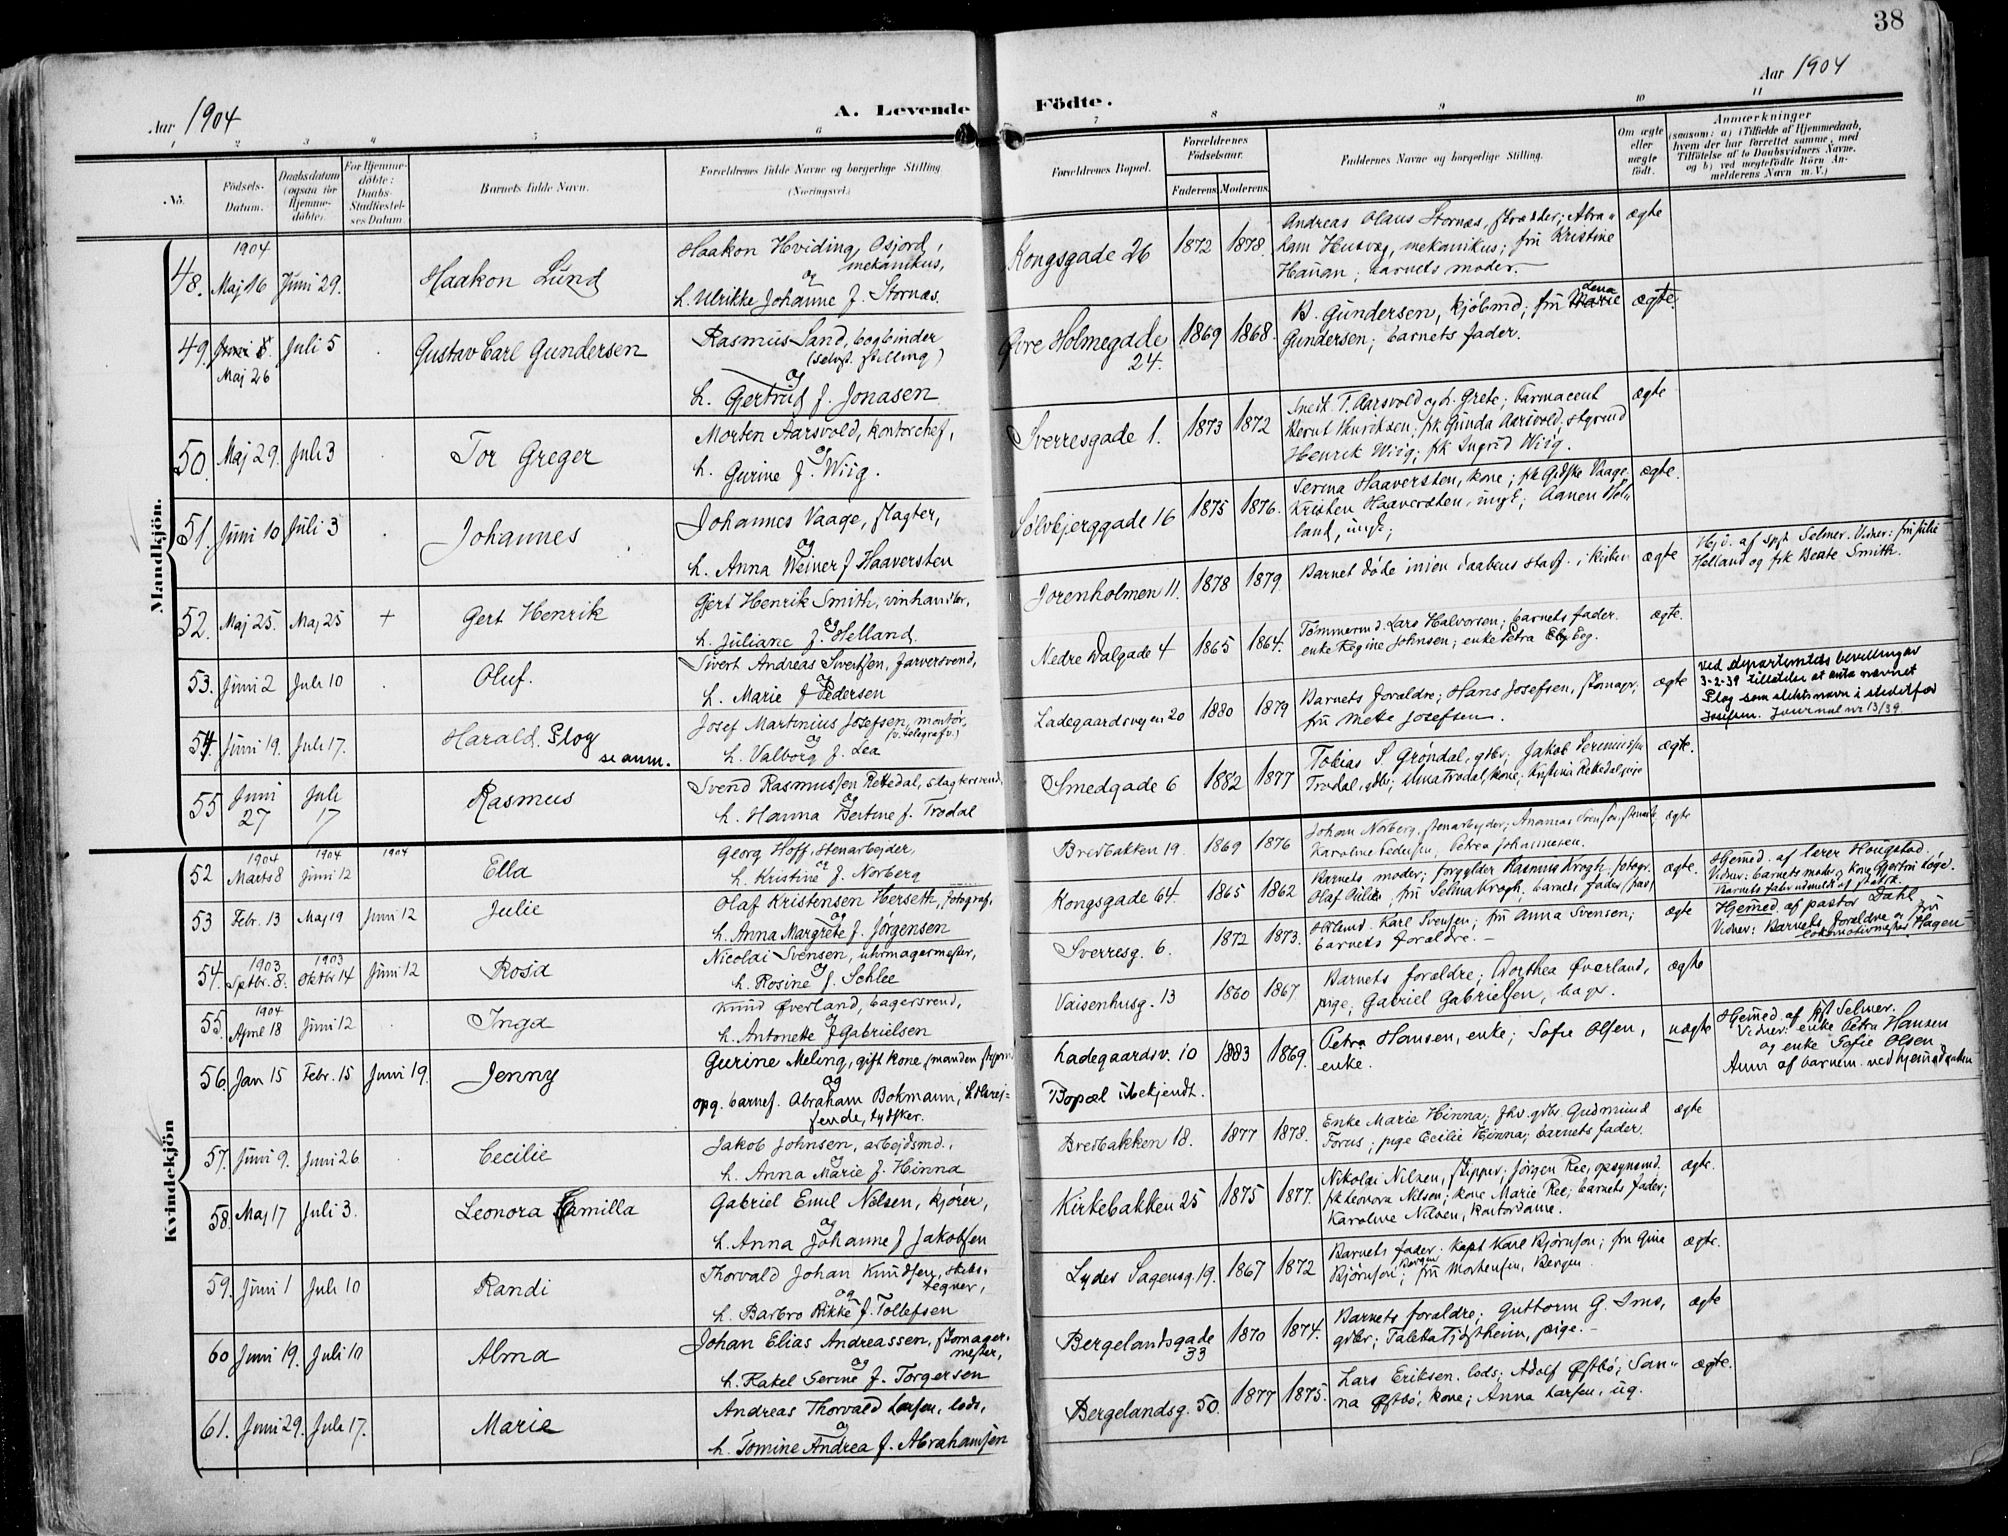 38
Aar 1904
A. Levende Födte.
Aar 1904
1 2 3 4 5 6 7 8 9 10 11
No.
Födsels-Datum.
Daabsdatum (ogsaa for Hjemmedöbte).
For Hjemmedöbte: Daabs-Stadfestelses Datum.
Barnets fulde Navn.
Forældrenes fulde Navne og borgerlige Stilling (Næringsvei.)
Forældrenes Bopæl.
Forældrenes Födselsaar.
Faderens. Moderens.
Faddernes Navne og borgerlige Stilling.
Om ægte eller uægte födt.
Anmærkninger
(saasom: a) (Tilfælde af Hjemmedaab, hvem der har forrettet samme, med Tilföielse af to Daabsvidners Navne, og b) ved uægtefödte Börn Anmelderens Navn m. V.)
Mandkjön.
48. 1904 Maj 16 Juni 29. Haakon Lund
Haakon Hviding Osjord, mekanikus,
og
h. Ulrikke Johanne f. Stornæs.
Kongsgade 26 1872 1878.
Andreas Olaus Stornæs, skrædder; Abra-
ham Husvæg, mekanikus; fru Kristine
Hanan; barnets moder.
ægte
49. Juni 8. Maj 26 Juli 5 Gustav Carl Gundersen
Rasmus Sand, bogbinder
(selvst. stilling)
og
h. Gjertrud f. Jonasen
Øvre Holmegade 24. 1869 1868.
B. Gundersen, kjøbmd; fru Marie Lena
Gundersen; barnets fader.
ægte.
50. Maj 29. Juli 3 Tor Greger
Morten Aarsvold, kontorchef,
og
h. Gurine f. Wiig.
Sverresgade 1. 1873 1872
Snedk. T. Aarsvold og h. Grete; farmaceut
Bernt Henriksen; frk Gunda Aarsvold, styrmd
Henrik Wiig; frk Ingrid Wiig.
ægte
51. Juni 10 Juli 3 Johannes
Johannes Vaage, slagter,
og
h. Anna Weiner f Haaversten
Sølvbjerggade 16 1875 1876.
Serina Haaversten, kone; frk Gidske Vaage.
Kristen Haaversten, ungk; Aanen Hol-
land, ungk;
ægte.
52. Maj 25. Maj 25 + Gert Henrik
Gjert Henrik Smith, vinhandler,
og
h. Juliane f. Helland.
Jorenholmen 11. 1878 1879.
Barnet døde inden daabens stadf. i kirken
ægte
Hjd. af spgt Selmer. Vidner: fru Julie
Helland og frk Beate Smith.
53. Juni 2 Juli 10 Oluf.
Sivert Andreas Sivertsen, farversvend,
og
h. Marie f Pedersen
Nedre Dalgade 4 1865 1864.
Tømmermd. Lars Halvorsen; barnets fader.
enke Regine Johnsen; enke Petra Eeg.
ægte.
54. Juni 19. Juli 17. Harald. Plog
se anm.
Josef Martinius Josefsen, montør,
(v. telegrafv.)
og
h. Valborg f. Lea
Ladegaardsvegen 20 1880 1879
Barnets forældre; Hans Josefsen, skomagr;
fru Mette Josefsen.
ægte
Ved departemtets bevilling av
3-2-39 tillatelse at anta navnet
Plog som slektsnavn i stedetfor
Josefsen. Journal nr 13/39.
55 Juni 27 Juli 17 Rasmus
Svend Rasmussen Rettedal, slagtersvend,
og
h. Hanna Bertine f. Trodal
Smedgade 6 1882 1877
Tobias S. Grøndal, gdbr; Jakob Sermussen
Trodal, gdbr; Trodal, kone; Kristina Rettedal, pige
ægte.
Kvindekjön
52 1904 Marts 8 1904 Juni 12 1904 Ella
Georg Hoff, stenarbejder,
og
h. Kristine f. Norberg
Bredbakken 19. 1869 1876
Johan Norberg, stenarbejder; Ananias Svensen, stenarb
Karoline Pedersen, Petra Johannesen.
ægte
53 Febr. 13 Maj 19 Juni 12 Julie
Olaf Kristensen Herseth, fotograf,
og
h. Anna Margrete f. Jørgensen
Kongsgade 64. 1865 1862
Barnets moder; forgylder Rasmus Krogh, fotogr.
Olaf fru Selma Krogh, barnets fader
ægte.
Hjemd. af lærer Haugstad.
Vidner: barnets moder, kone Gjertrin Løge.
Barnets fader udmeldt af statsk.
54. 1903 Septbr. 8. 1903 Oktbr 14 Juni 12 Rosa
Nicolai Svensen, uhrmagermester,
og
h. Rosine f. Schlee
Sverresg. 6. 1872 1873.
Karl Svensen; fru Anna Svensen;
barnets forældre.
ægte
Hjemd. af pastor Dahl
Vidner: Barnets forældre og fru
lokomotivmester Hagen
55. 1904 April 18 Juni 12 Inga
Knud Øverland, bagersvend,
og
h. Antonette f Gabrielsen
Vaisenhusg. 13 1860 1867
Barnets forældre; Dorthea Øverland,
pige, Gabriel Gabrielsen, bager.
ægte
56. Jan 15 Febr. 15 Juni 19. Jenny
Gurine Meling, gift kone,
og
opg. barnef. Abraham Bokmann,
sende, tydsker.
Ladegaardsv. 10 1883 1869.
Bopæl ubekjendt.
Petra Hansen, enke; Sofie Olsen,
enke.
uægte
Hjemd. af spgt Selmer.
Vidner: enke Petra Hansen
og enke Sofie Olsen
Anm af barnem. ved hjemmedaaben
57. Juni 9. Juni 26 Cecilie
Jakob Johnsen, arbejdsmd.,
og
h. Anna Marie f. Hinna
Bredbakken 18. 1877 1878.
Enke Marie Hinna; fhv. gdbr Gudmund
Forus, pige Cecilie Hinna; barnets fader.
ægte
58. Maj 17 Juli 3. Leonora Camilla
Gabriel Emil Nilsen, kjører,
og
h. Anna Johanne f Jakobsen
Kirkebakken 25 1875 1877.
Nikolai Nilsen, skipper; Jørgen Ree, opsynsmd.
frk Leonora Nilsen; kone Marie Ree; barnets fader;
Karoline Nilsen, kontordame.
ægte.
59. Juni 1 Juli 10 Randi
Thorvald Johan Knudsen, skibs-
tegner,
og
h. Barbro Rikke f. Tollefsen
Lyder Sagensg. 19. 1867 1872
Barnets fader; kapt Karl Bjørnson; fru Gina
Bjørnson, Bergen; fru Mortensen, Bergen
ægte.
60 Juni 19. Juli 10 Alma
Johan Elias Andreassen, skomager-
mester,
og
h. Rakel Serine f. Torgersen
Bergelandsgade 33 1870 1874.
Barnets forældre; Guttorm G. Ims,
gdbr; Taletta Tjostheim, pige.
ægte
61. Juni 29. Juli 17. Marie
Andreas Thorvald Larsen, lods,
og
h. Tomine Andrea f. Abrahamsen
Bergelandsg. 50. 1877 1875.
Lars Eriksen, lods; Adolf Østbø; San-
na Østbø, kone; Anna Larsen, ug.
ægte.